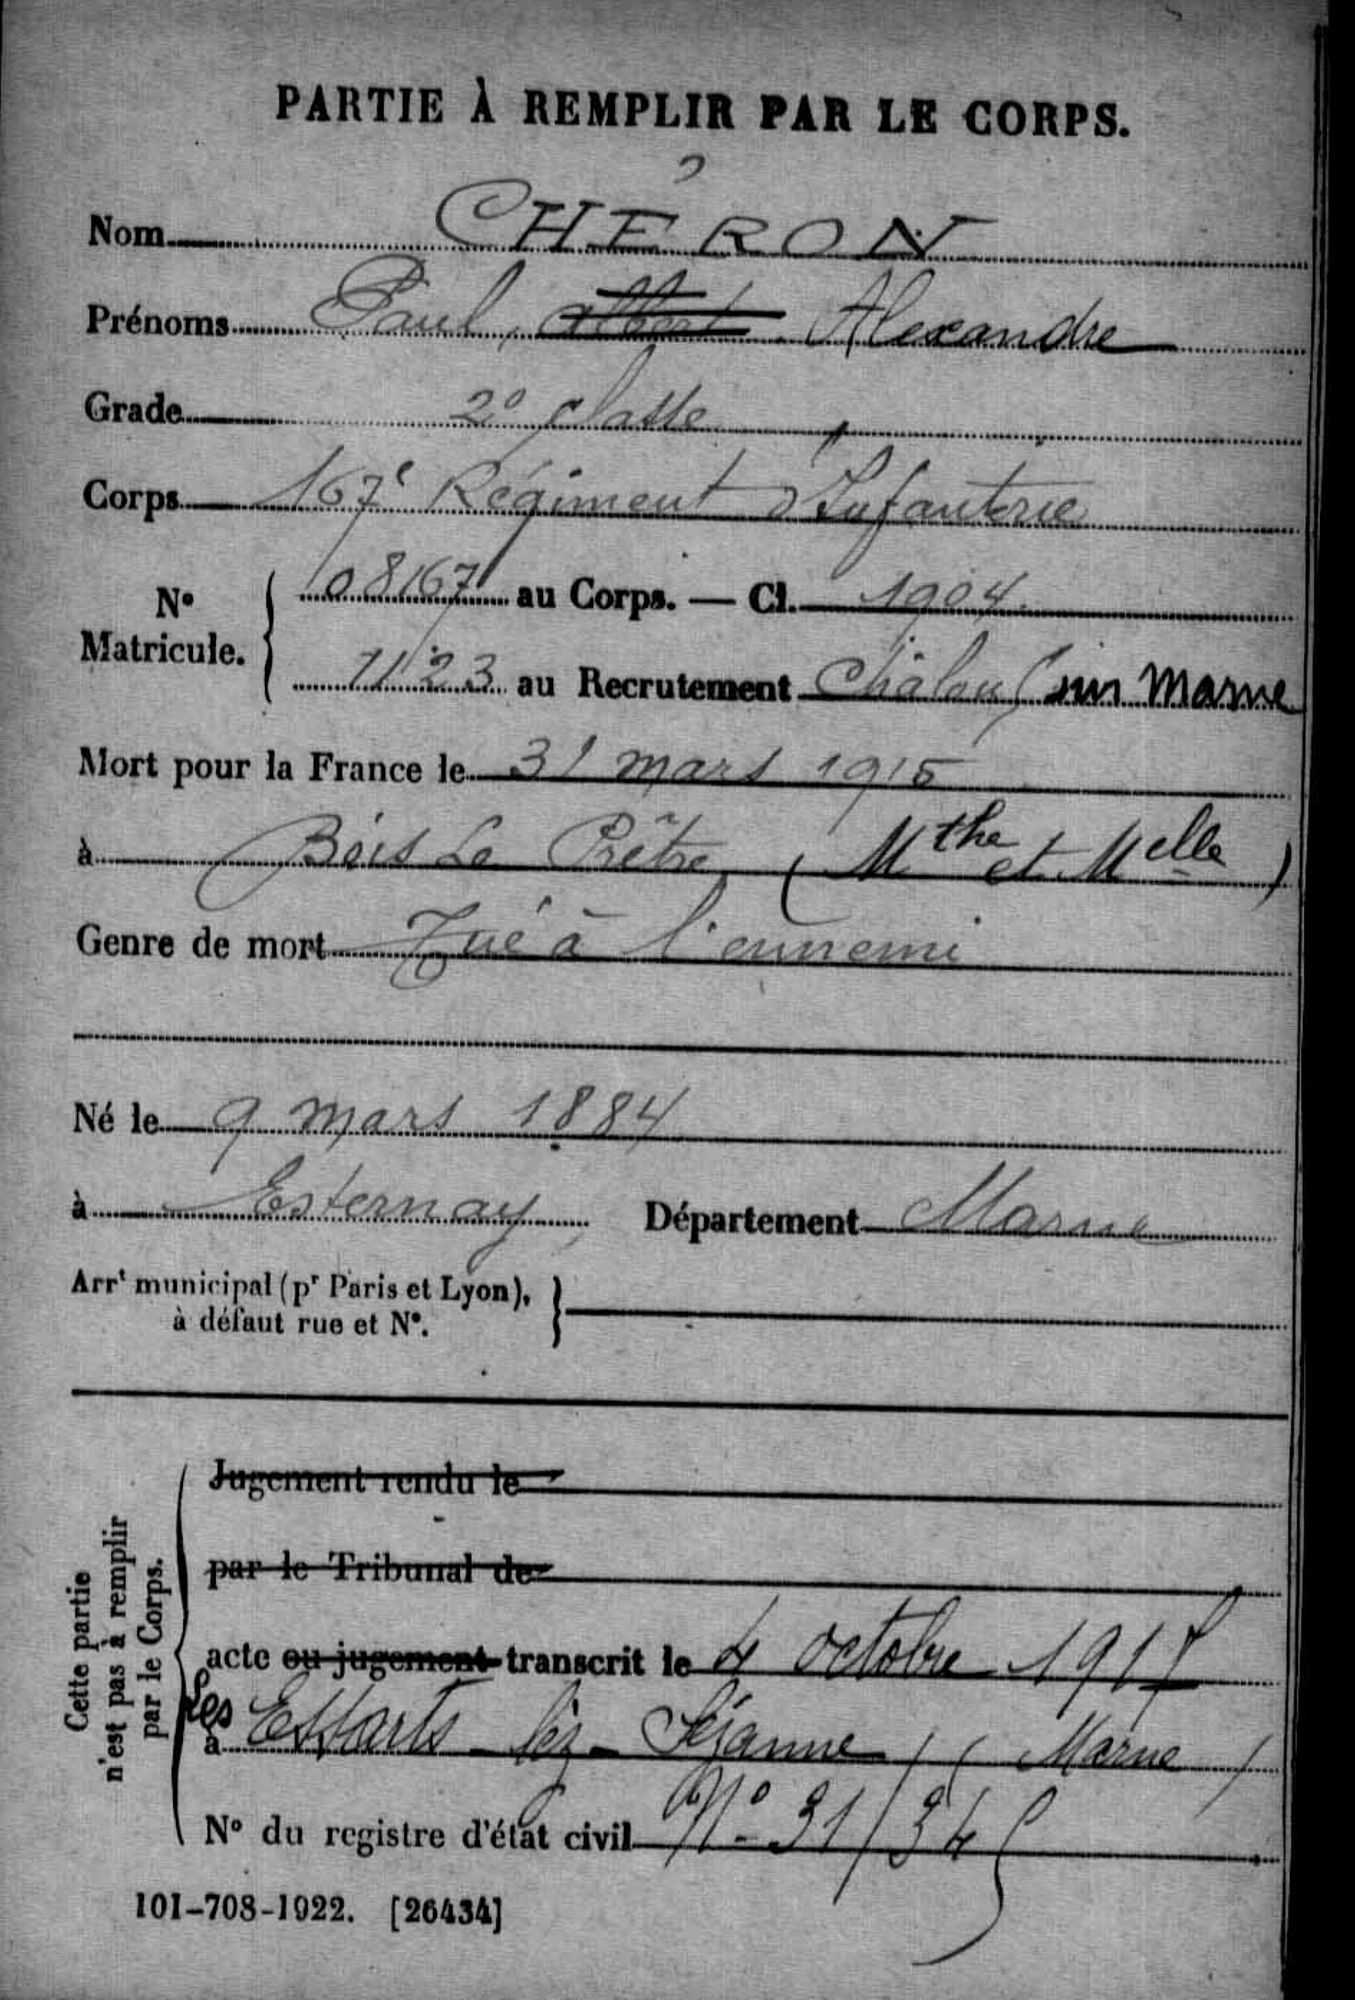 PARTIE À REMPLIR PAR LE CORPS.
Nom CHERON
Prénoms Paul, Albert Alexandre
Grade 2e classe
Corps 167e Régiment d'Infanterie
No Matricule. { 08167 au Corps. — Cl. 1904
1123 au Recrutement Châlons sur Marne
Mort pour la France le 31 mars 1915
à Bois Le Prêtre (Mthe et Melle)
Genre de mort Tué à l'ennemi
Né le 9 mars 1884
à Esternay, Département Marne
Arrt municipal (pr Paris et Lyon), }
à défaut rue et No.
Cette partie
n'est pas à remplir
par le Corps.
Jugement rendu le
par le Tribunal de
acte ou jugement transcrit le 4 octobre 1917
à Les Essarts-lez-Sézanne, (Marne)
No du registre d'état civil No 31/34
101-708-1922. [26434]